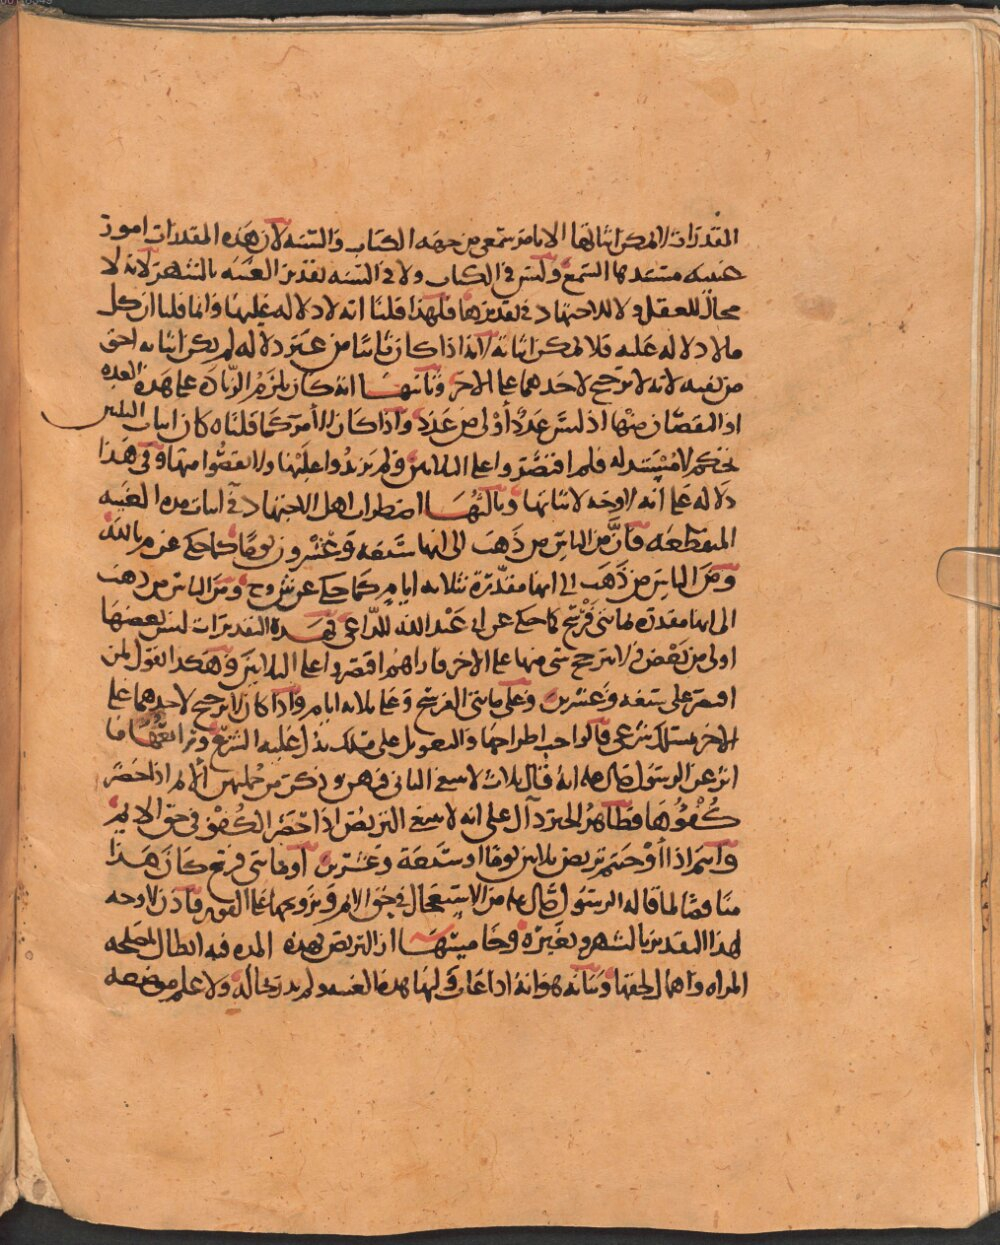 المقدرات لا يمكن اثباتها الا بامر سمعي من جهة الكتاب والسنه لان هذه المقدرات امور
غيبيه مستندها السمع وليس في الكتاب ولا في السنه تقدير الغيبه بالشهر لانه لا
مجال للعقل ولا للاجتهاد في تقديرها فلهذا قلنا انه لا دلاله عليها وانما قلنا ان كل
ما لا دلاله عليه فلا يمكن اثباته لانه اذا كان ثابتا من غير دلاله لم يكن اثباته احق
من نفيه لانه لا ترجيح لاحدهما على الاخر وثانيها انه كان يلزم الزياده على هذه العده
او النقصان منها اذ ليس عدد أولى من عدد واذا كان الأمر كما قلناه كان اثبات الثلثين
تحكم لا مستند له فلم اقتصروا على الثلاثين ولم يزيدوا عليها ولا نقصوا منها وفي هذا
دلاله على انه لا وجه لاثباتها وثالثها اضطراب اهل الاجتهاد في اثبات مده الغيبه
المنقطعه فان من الناس من ذهب الى انها سبعه وعشرون يوما كما حكي عن م بالله
ومن الناس من ذهب الى انها مقدرة بثلاثه ايام كما حكي عن شريح ومن الناس من ذهب
الى انها مقدره بمائتي فرسخ كما حكي عن ابي عبد الله الداعي فهذه التقديرات ليس بعضها
اولى من بعض ولا ترجيح شي منها على الاخر فما بالهم اقتصروا على الثلاثين وهكذا القول لمن
اقتصر على سبعه وعشرين وعلى مائتي الفرسخ وعلى ثلاثه ايام واذا كان لا ترجيح لاحدهما على
الاخر بمسلك شرعي فالواجب اطراحها والتعويل على مسلك يدل عليه الشرع ورابعها ما
اثر عن الرسول صلى الله عليه انه قال ثلاث لا ينبغي التاني فيهن وذكر من جملتهن الايم اذا حضر
كفوها فظاهر الخبر دال على انه لا ينبغي التربص اذا حضر الكفو في حق الايم
وانتم اذا أوجبتم تربص ثلاثين يوما او سبعة وعشرين او مائتي فرسخ كان هذا
مناقضا لما قاله الرسول صلى الله عليه من الاستعجال في حق الايم وتزويجها على الفور فاذن لا وجه
لهذا التقدير بالشهر وبغيره وخامسها ان التربص بهذه المده فيه ابطال لمصلحه
المراه واهمال لحقها وبيانه هو انه اذا غاب وليها هذه الغيبه ولم يدر بحاله ولا علم موضعه